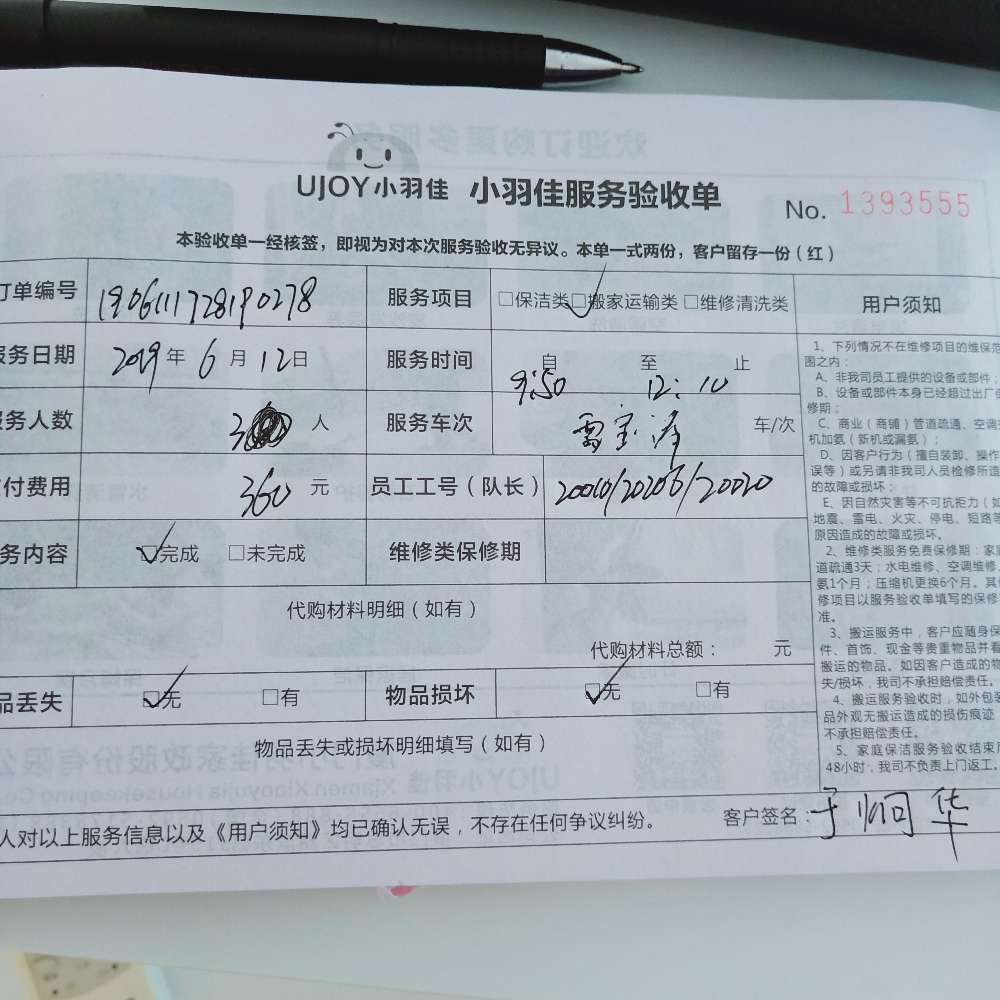 UJOY小羽佳 小羽佳服务验收单
No. 1393555
本验收单一经核签，即视为对本次服务验收无异议。本单一式两份，客户留存一份（红）
订单编号 1906111728190278 服务项目 □保洁类 □搬家运输类 □维修清洗类
服务日期 2019年6月12日 服务时间 自9:50 至12:10 止
服务人数 3 人 服务车次 车/次
付费用 360 元 员工工号（队长） 20010/20206/20020
务内容 □完成 □未完成 维修类保修期
代购材料明细（如有）
代购材料总额： 元
品丢失 □无 □有 物品损坏 □无 □有
物品丢失或损坏明细填写（如有）
人对以上服务信息以及《用户须知》均已确认无误，不存在任何争议纠纷。 客户签名：于炯华
用户须知
1、下列情况不在维修项目的维保范
围之内：
A、非我司员工提供的设备或部件；
B、设备或部件本身已经超过出厂
修期；
C、商业（商铺）管道疏通、空调
机加氨（新机或漏氨）；
D、因客户行为（擅自装卸、操作
误等）或另请非我司人员检修所造
的故障或损坏；
E、因自然灾害等不可抗拒力（如
地震、雷电、火灾、停电、短路等
原因造成的故障或损坏。
2、维修类服务免费保修期：家
道疏通3天；水电维修、空调维修、
氨1个月；压缩机更换6个月。其
修项目以服务验收单填写的保修
准。
3、搬运服务中，客户应随身保
件、首饰、现金等贵重物品并看
搬运的物品。如因客户造成的物
失/损坏，我司不承担赔偿责任。
4、搬运服务验收时，如外包装
品外观无搬运造成的损伤痕迹
不承担赔偿责任。
5、家庭保洁服务验收结束
48小时，我司不负责上门返工。